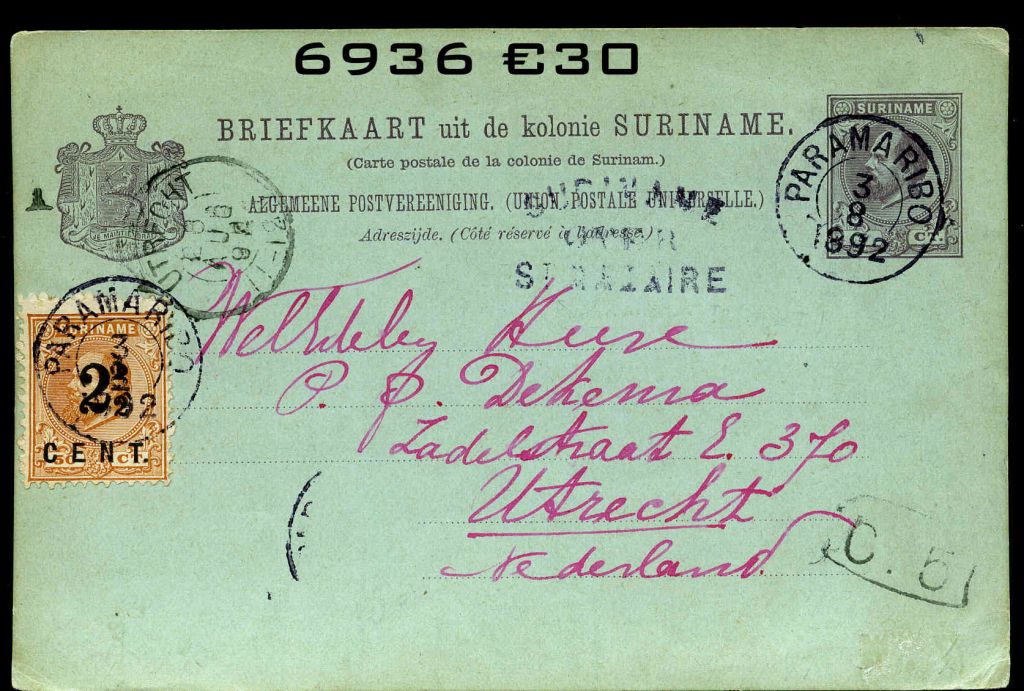 6936 €30
BRIEFKAART uit de kolonie SURINAME.
(Carte postale de la colonie de Surinam.)
ALGEMEENE POSTVEREENIGING. (UNION POSTALE UNIVERSELLE.)
Adreszijde. (Côté réservé à l'adresse.)
SURINAME
PARAMARIBO
3
8
1892
CT
UTRECHT
SURINAME
OVER
ST NAZAIRE
SURINAME
PARAMARIBO
3
92
2½
CENT.
50 CT
Heere
P. J. Dekema
Zadelstraat E. 370
Utrecht
Nederland.
C. 5